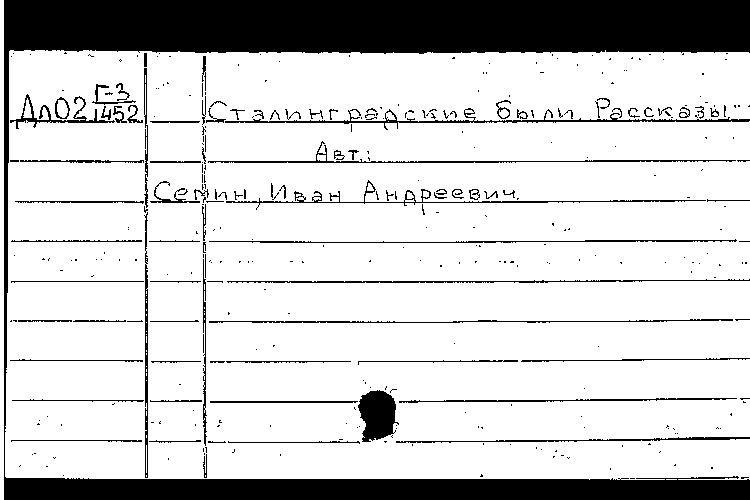 Дл02 Г-3/1452 Сталинградские были. Рассказы...
Авт.:
Семин, Иван Андреевич.